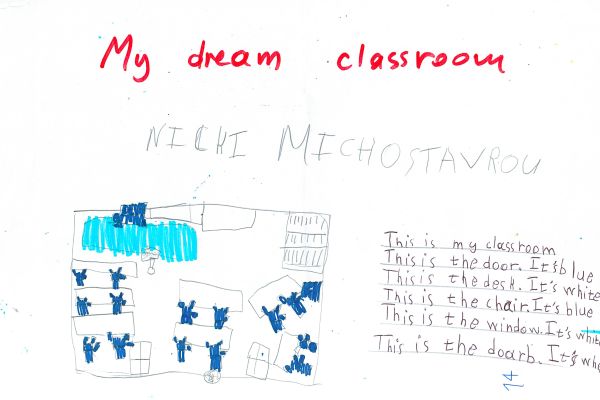 My dream classroom
NICKI MICHOSTAVROU
This is my classroom
This is the door. It's blue
This is the desk. It's white
This is the chair. It's blue
This is the window. It's whit
This is the doarb. It's whe
14